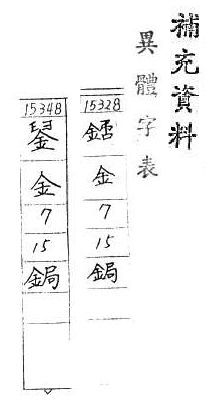 補充資料
異體字表
15328
金
7
15
鋦
15348
金
7
15
鋦